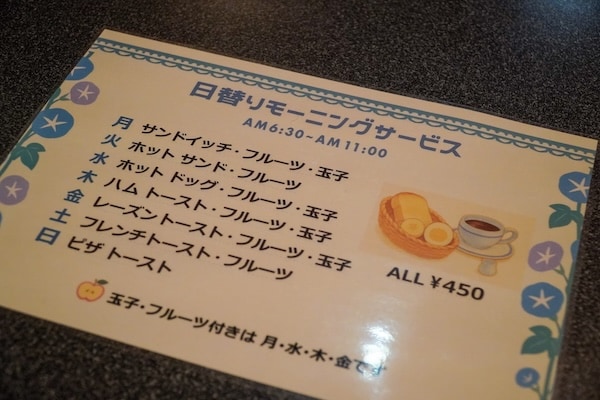 日替りモーニングサービス
AM6:30~AM11:00
月 サンドイッチ・フルーツ・玉子
火 ホット サンド・フルーツ
水 ホット ドッグ・フルーツ・玉子
木 ハム トースト・フルーツ・玉子
金 レーズントースト・フルーツ・玉子
土 フレンチトースト・フルーツ
日 ピザ トースト
ALL ¥450
玉子・フルーツ付きは 月・水・木・金です